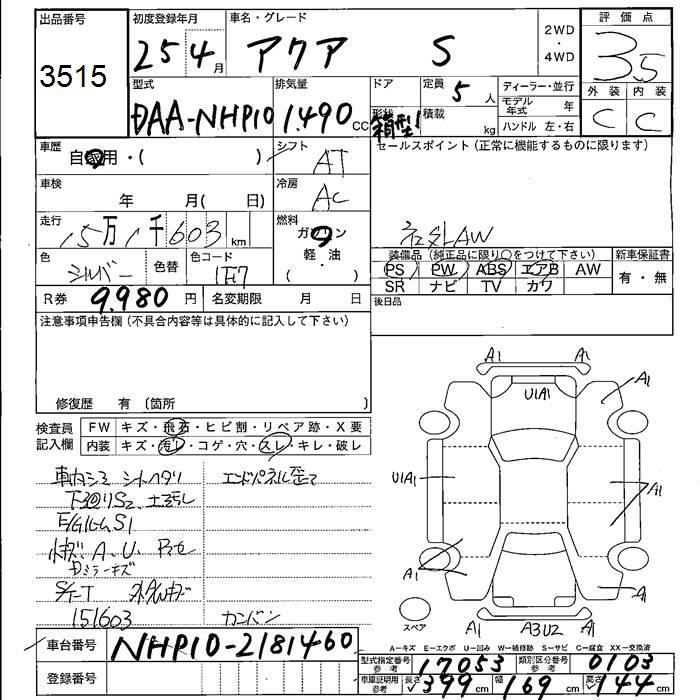 出品番号 初度登録年月 車名・グレード 2WD・4WD 評価点
3515 25 4月 アクア S 3.5
型式 排気量 ドア 定員 5人 ディーラー・並行 外装 内装
DAA-NHP10 1.490 CC 形状 箱型 積載 kg モデル年式 年 C C
ハンドル 左・右
車歴 自家用・( ) シフト AT セールスポイント (正常に機能するものに限ります)
車検 年 月( 日) 冷房 AC
走行 15万1千603 km 燃料 ガソリン 軽・油 ( ) 社外AW
色 シルバー 色替 色コード 1F7
装備品 (純正品に限り○をつけて下さい) 新車保証書
PS PW ABS エアB AW 有・無
SR ナビ TV カワ
R券 9.980 円 名変期限 月 日 後日品
注意事項申告欄 (不具合内容等は具体的に記入して下さい)
修復歴 有 (箇所 )
検査員記入欄 FW キズ・飛石・ヒビ割・リペア跡・X要
内装 キズ・汚レ・コゲ・穴・スレ・キレ・破レ
車内シミ シートヘタリ エンドパネル歪て
下回りS2 土汚し
E/GルームS1
小キズ A.U.
Dミラーキズ
151603 カンバン
A1 A1
U1A1 A1
U1A1 A1
A1 A1
スペア A1 A3U2 A1
A-キズ E-エクボ U-凹み W-補修跡 S-サビ C-腐食 XX-交換済
車台番号 NHP10-2181460
型式指定番号 参考 17053 類別区分番号 参考 0103
登録番号
車庫証明用 参考 長さ 399 cm 幅 169 cm 高さ 144 cm